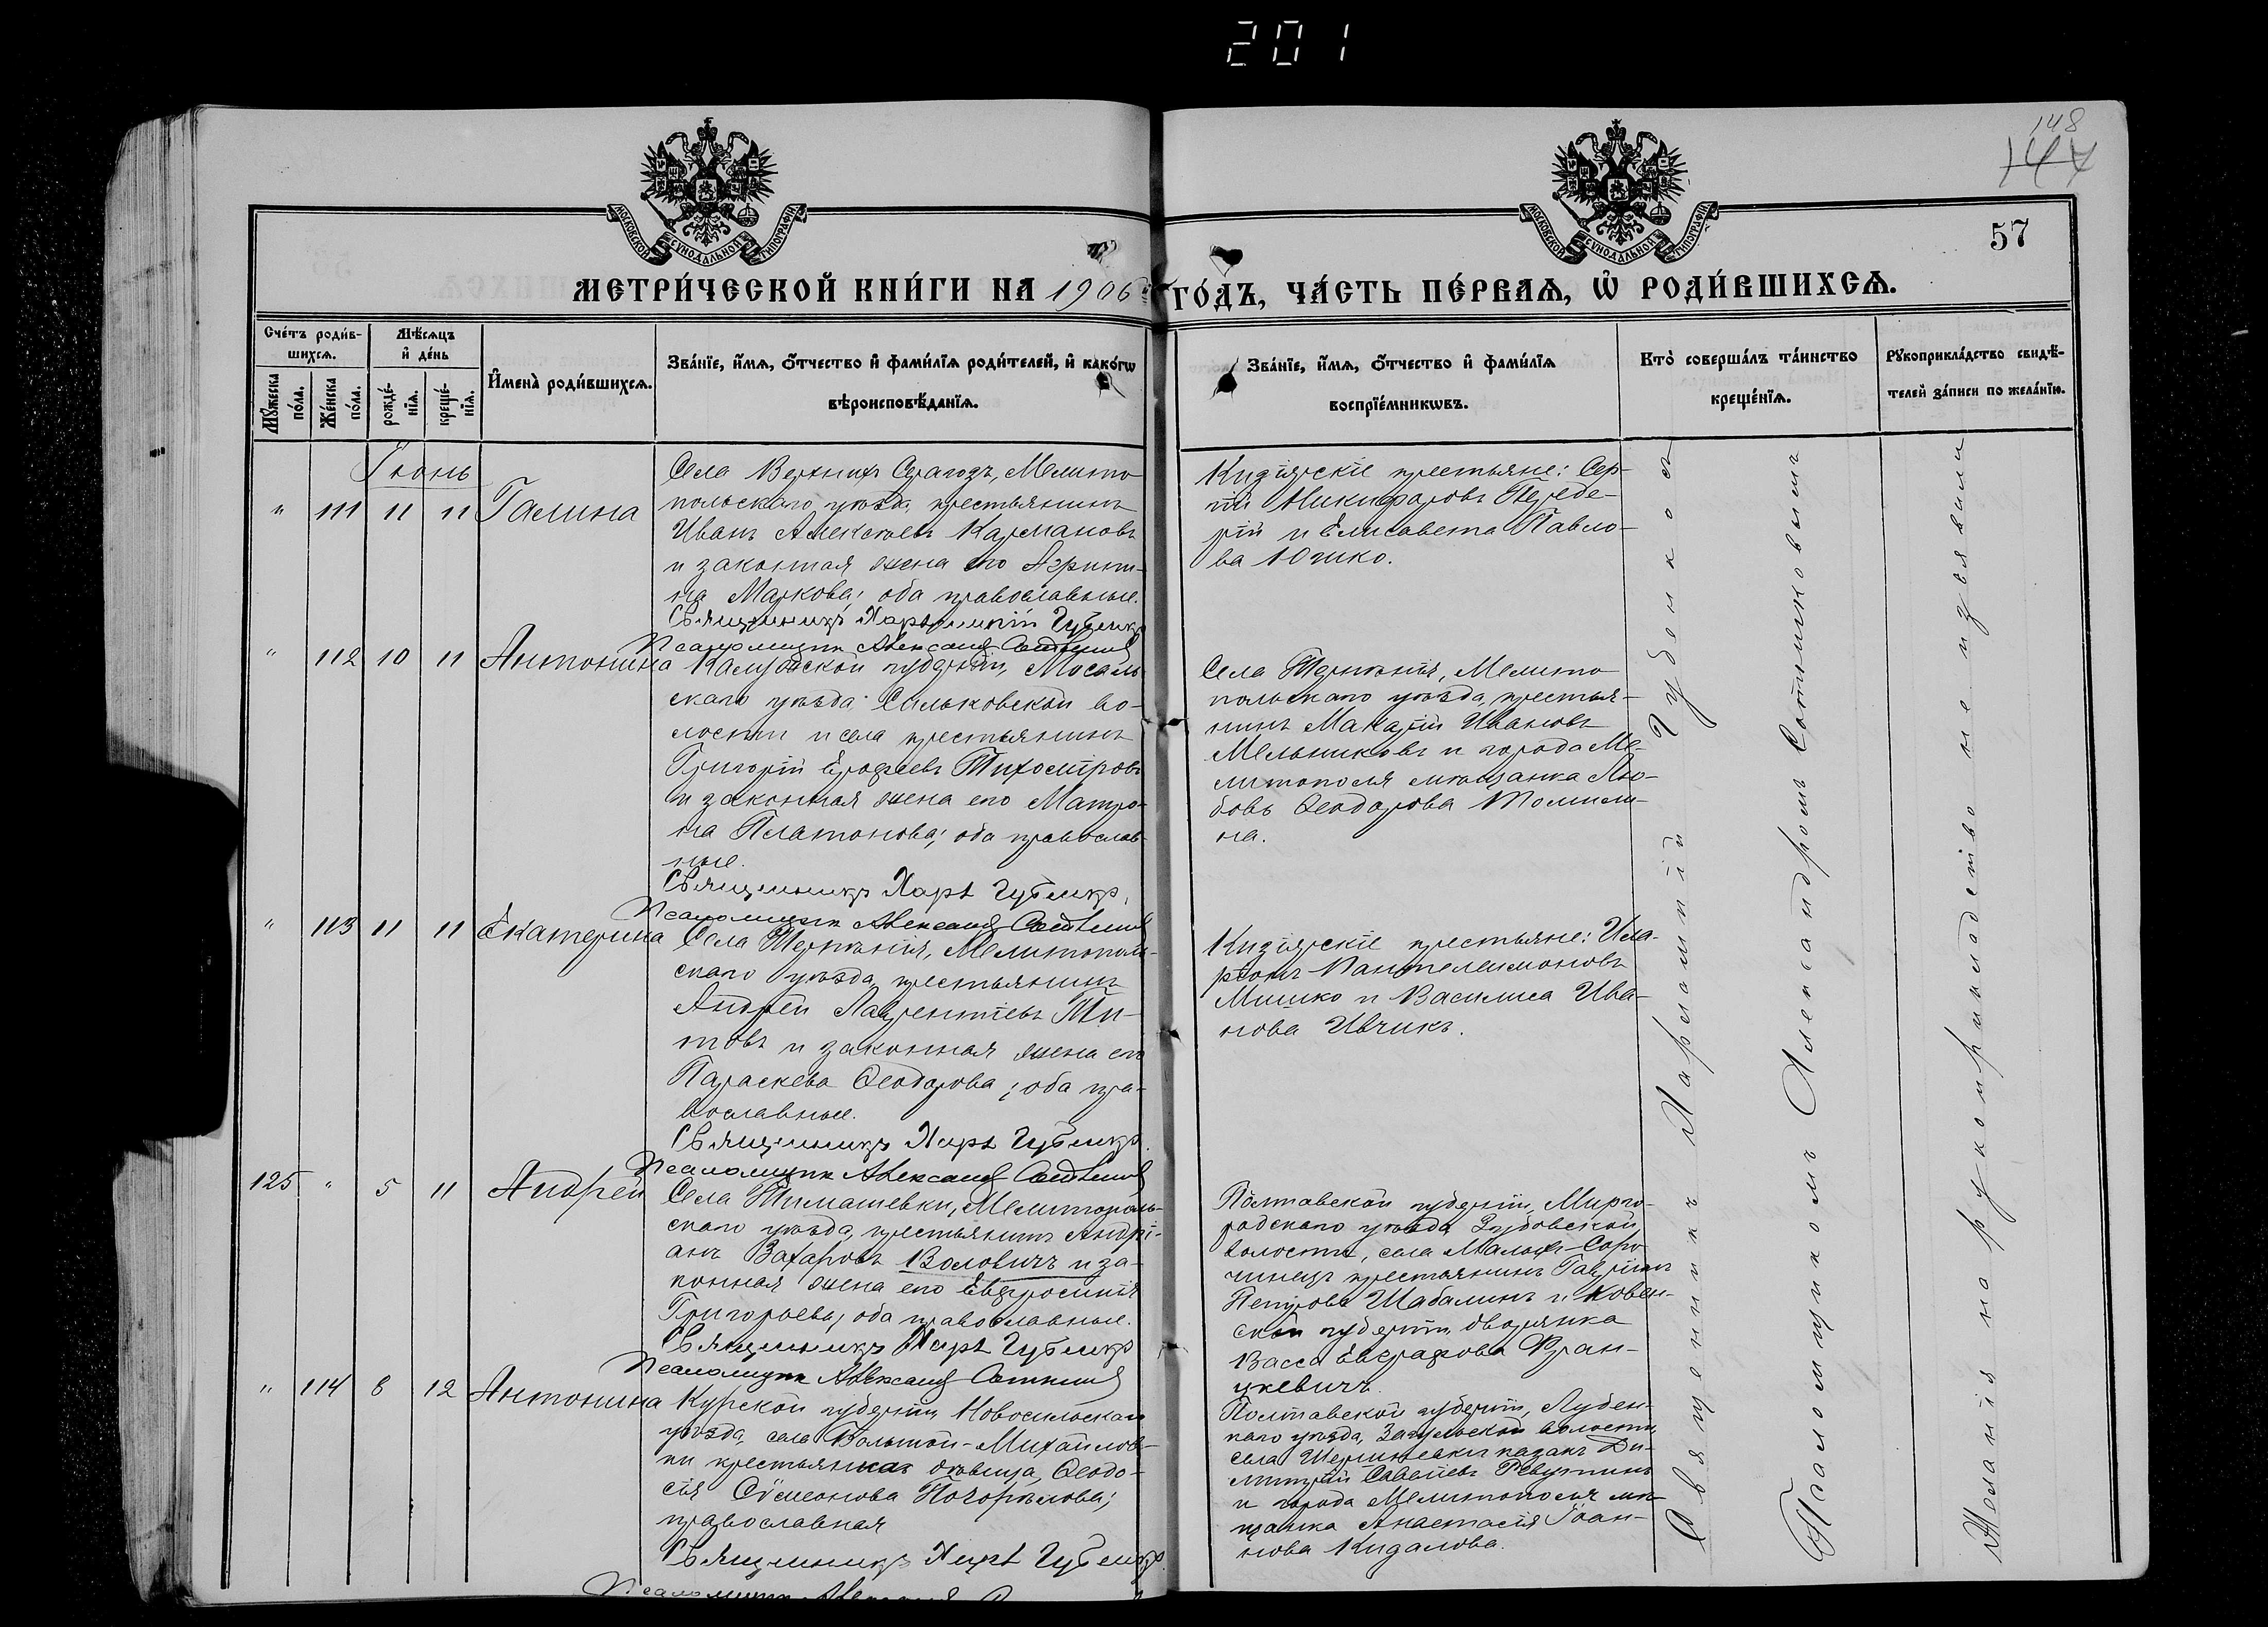 201
148
147
57
МОСКОВСКОЙ СѴНОДАЛЬНОЙ ТИПОГРАФІИ
МОСКОВСКОЙ СѴНОДАЛЬНОЙ ТИПОГРАФІИ
МЕТРИ́ЧЕСКОЙ КНИ́ГИ НА 1906 ГО́ДЪ, ЧА́СТЬ ПЕ́РВАѦ, Ѡ҆ РОДИ́ВШИХСѦ.
Сче́тъ роди́в-
шихсѧ.
Мꙋ́жеска по́ла.
Же́нска по́ла.
Мѣ́сѧцъ
и҆ де́нь
рожде́-
нїѧ.
креще́-
нїѧ.
И҆мена̀ роди́вшихсѧ.
Зва́нїе, и҆́мѧ, ѻ҆́тчество и҆ фами́лїѧ роди́телей, и҆ како́гѡ
вѣроисповѣ́данїѧ.
Зва́нїе, и҆́мѧ, ѻ҆́тчество и҆ фами́лїѧ
воспрїе́мникѡвъ.
Кто̀ соверша́лъ та́инство
креще́нїѧ.
Рꙋкоприкла́дство свидѣ́-
телей за́писи по жела́нїю.
Іюнь
" 111 11 11 Галина
Села Верхнихъ Сѣрогозъ, Мелито-
польскаго уѣзда, крестьянинъ
Иванъ Алексѣевъ Кармановъ
и законная жена его
на Маркова; оба православные.
Священникъ Харлампій Губенко
Псаломщикъ Александръ Сотниковъ
Кизіярскіе крестьяне: Сер-
гій Никифоровъ Переде-
рій и Елисавета Павло-
ва Ючко.
" 112 10 11 Антонина
Калужской губерніи, Мосаль-
скаго уѣзда Сильковской во-
лости и села крестьянинъ
Григорій Ерофеевъ Тихомировъ
и законная жена его Матро-
на Платонова; оба православ-
ные.
Священникъ Харл Губенко,
Псаломщикъ Александръ Сотниковъ
Села Терпѣнія, Мелито
польскаго уѣзда, крестья-
нинъ Макарій Ивановъ
Мельниковъ и города Ме-
литополя мѣщанка Лю-
бовь Ѳеодорова Толмачи-
на.
" 113 11 11 Екатерина
Села Терпѣнія, Мелитополь-
скаго уѣзда, крестьянинъ
Андрей Лаврентіевъ Ти-
товъ и законная жена его
Параскева Ѳеодорова; оба пра-
вославные.
Священникъ Харл Губенко
Псаломщикъ Александръ Сотниковъ
Кизіярскіе крестьяне: Ила-
ріонъ Пантелеимоновъ
Мишко и Василиса Ива-
нова Ивчикъ.
125 " 5 11 Андрей
Села Тимашевки, Мелитополь-
скаго уѣзда, крестьянинъ Андрі-
анъ Захаровъ Воловичъ и за-
конная жена его Евфросинія
Григорьева; оба православные.
Священникъ Харл Губенко
Псаломщикъ Александръ Сотниковъ
Полтавской губерніи, Мирго-
родскаго уѣзда, Зубовской
волости, села Малыхъ-Соро
чинецъ крестьянинъ Гавріилъ
Петровъ Шабалинъ и Ковен-
ской губерніи, дворянка
Васса Евграфова Вран-
цкевичъ.
" 114 8 12 Антонина
Курской губерніи Новооскольскаго
уѣзда, села Большой-Михайлов-
ки крестьянская дѣвица, Ѳеодо-
сія Сѵмеонова Погорѣлова;
православная
Священникъ Харл Губенко
Псаломщикъ
Полтавской губерніи, Лубен-
скаго уѣзда, Засульской волости,
села казакъ Ди-
митрій Савеліевъ Ревуцкій
и города Мелитополя мѣ-
щанка Анастасія Іоан-
нова Кидалова.
Священникъ Харлампій Губенко съ
Псаломщикомъ Александромъ Сотниковымъ
Желанія на рукоприкладство не изъявили